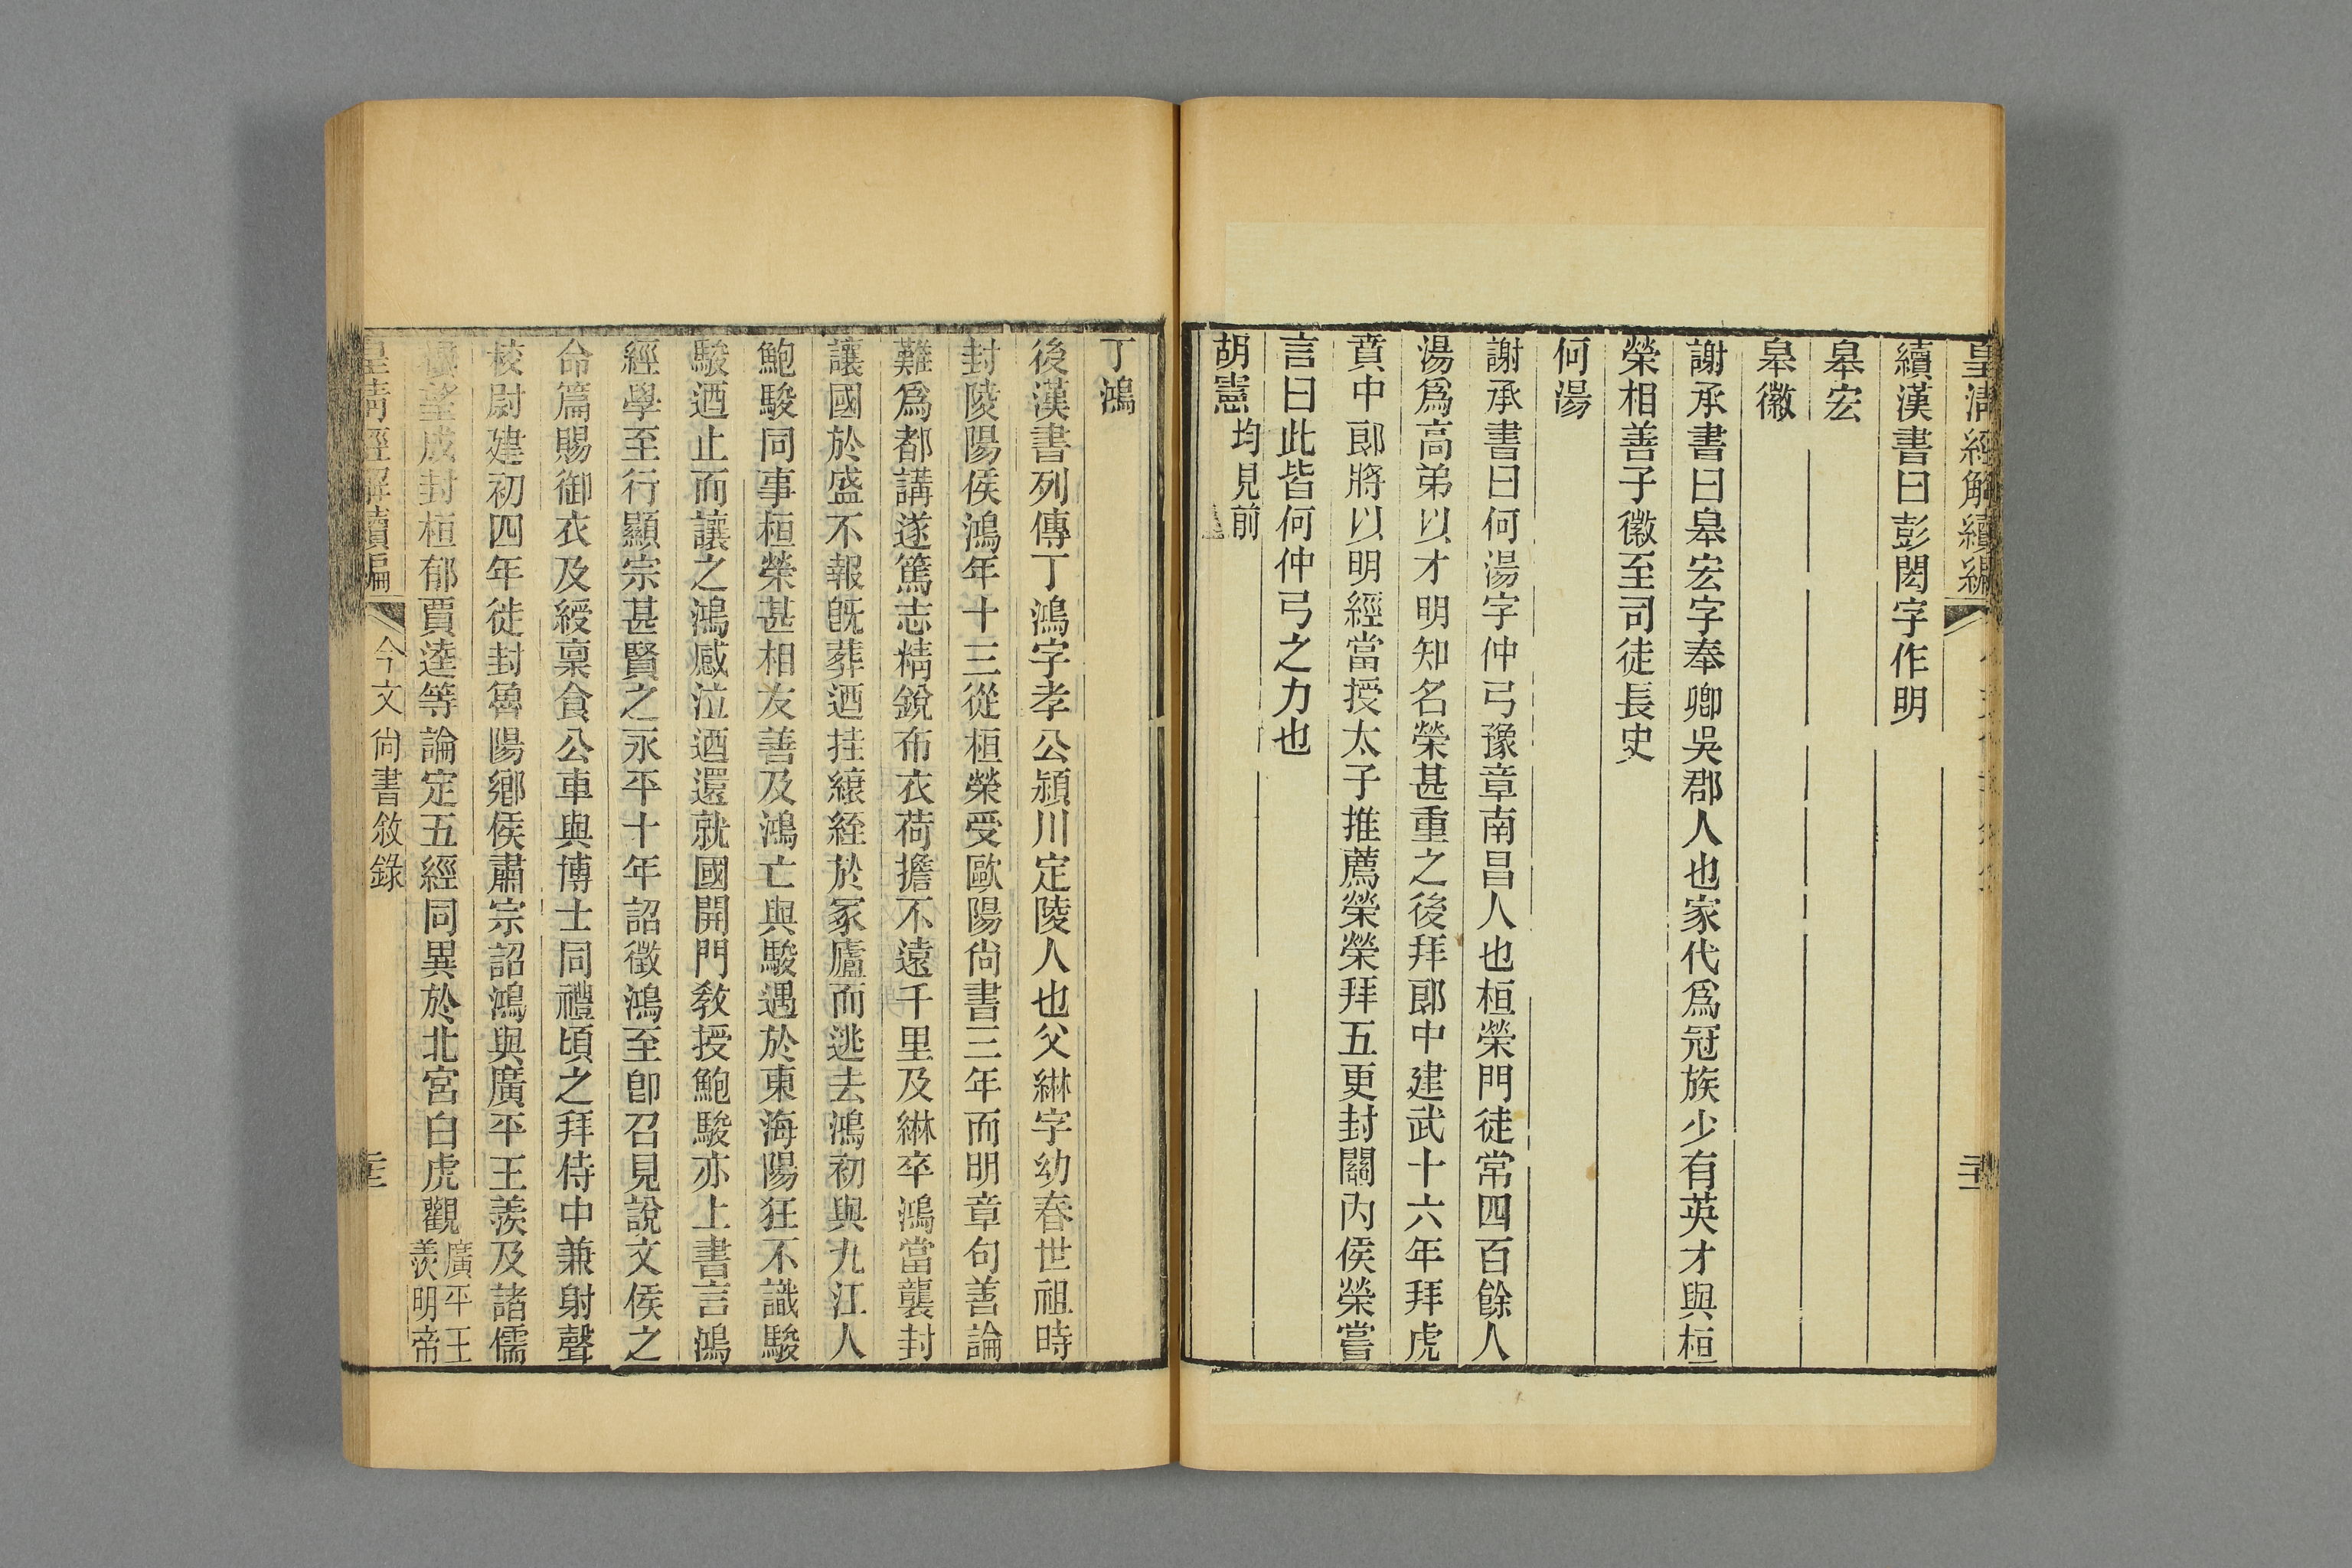 皇清經解續編
續漢書曰彭閎字作明
皋宏
皋徽
謝承書曰皋宏字奉卿吳郡人也家代爲冠族少有英才與桓
榮相善子徽至司徒長史
何湯
謝承書曰何湯字仲弓豫章南昌人也桓榮門徒常四百餘人
湯爲高弟以才明知名榮甚重之後拜郎中建武十六年拜虎
賁中郎將以明經當授太子推薦榮榮拜五更封關內侯榮嘗
言曰此皆何仲弓之力也
胡憲均見前
丁鴻
後漢書列傳丁鴻字孝公潁川定陵人也父綝字幼春世祖時
封陵陽侯鴻年十三從桓榮受歐陽尙書三年而明章句善論
難爲都講遂篤志精銳布衣荷擔不遠千里及綝卒鴻當襲封
讓國於盛不報旣葬迺挂縗絰於冢廬而逃去鴻初與九江人
鮑駿同事桓榮甚相友善及鴻亡與駿遇於東海陽狂不識駿
駿迺止而讓之鴻感泣迺還就國開門敎授鮑駿亦上書言鴻
經學至行顯宗甚賢之永平十年詔徵鴻至卽召見說文侯之
命篇賜御衣及綬稟食公車與博士同禮頃之拜侍中兼射聲
校尉建初四年徙封魯陽鄉侯肅宗詔鴻與廣平王羨及諸儒
樓望成封桓郁賈逵等論定五經同異於北宮白虎觀廣平王
羨明帝
皇清經解續編 今文尙書敘錄